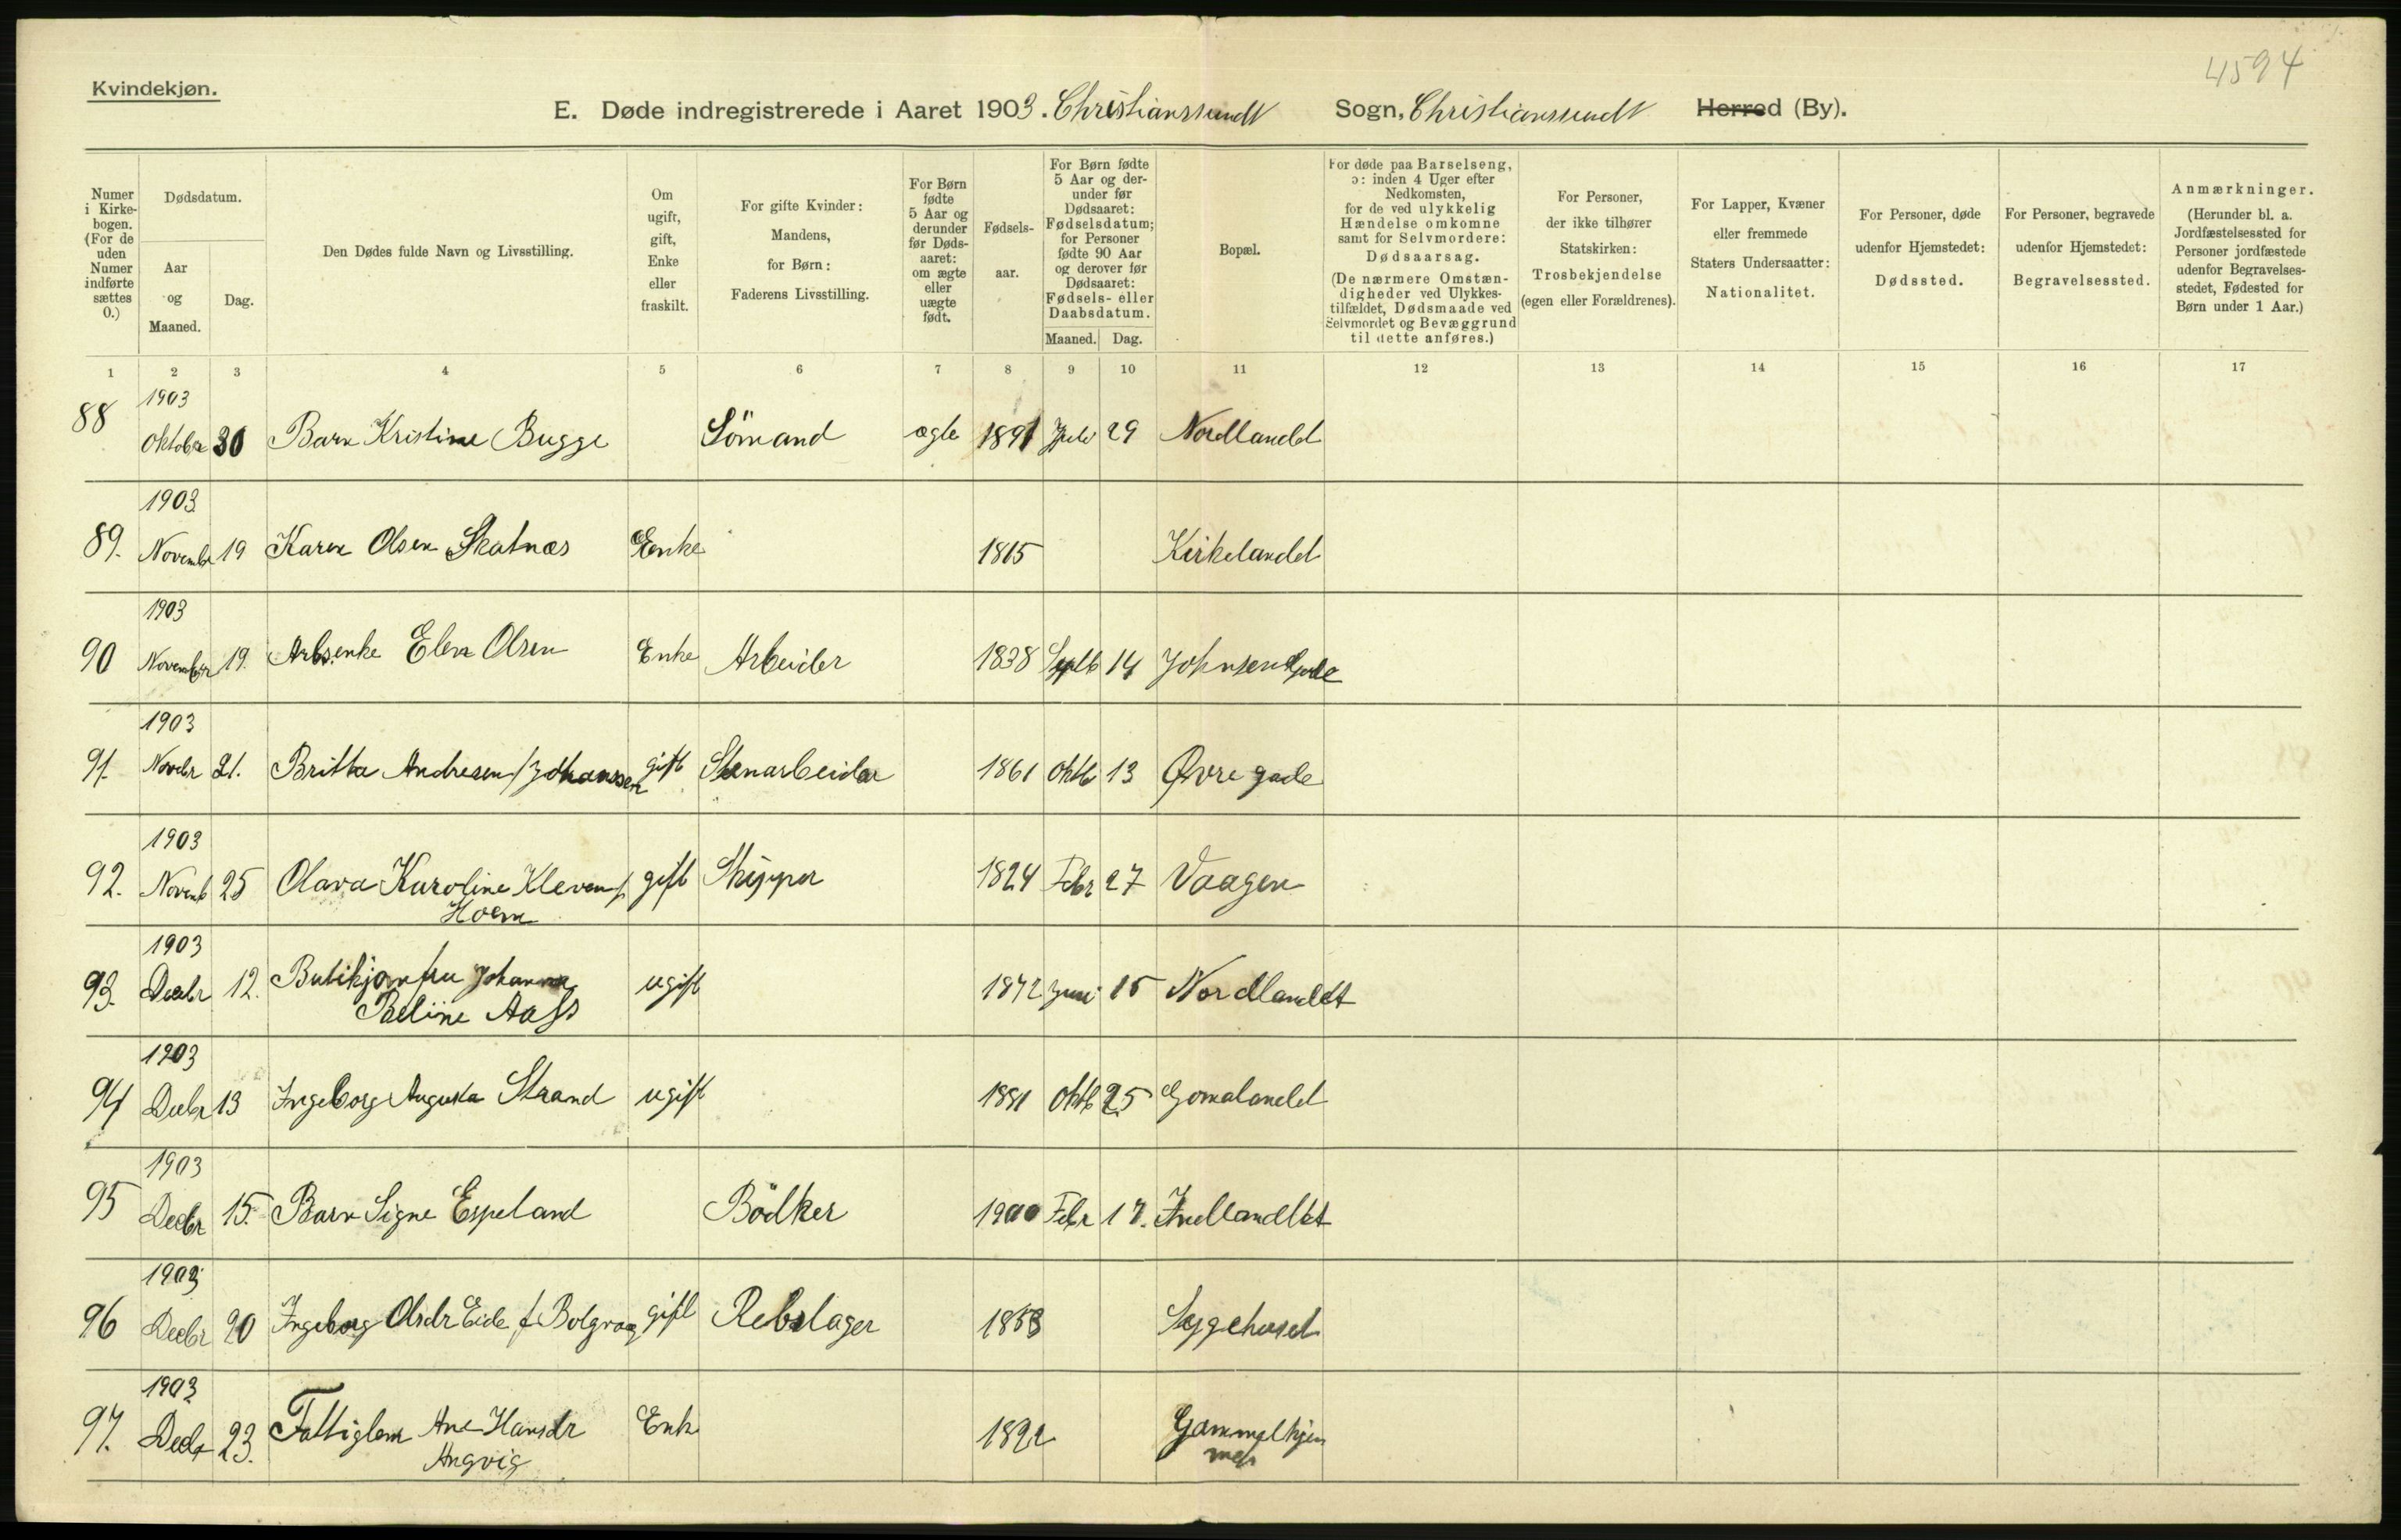 4594
Kvindekjøn.
E. Døde indregistrerede i Aaret 1903. Christianssundt Sogn, Christianssundt Herred (By).
Numer i Kirke-bogen. (For de uden Numer indførte sættes 0.)
Dødsdatum.
Aar og Maaned.
Dag.
Den Dødes fulde Navn og Livsstilling.
Om ugift, gift, Enke eller fraskilt.
For gifte Kvinder: Mandens, for Børn: Faderens Livsstilling.
For Børn fødte 5 Aar og derunder før Døds-aaret: om ægte eller uægte født.
Fødsels-aar.
For Børn fødte 5 Aar og der-under før Dødsaaret: Fødselsdatum; for Personer fødte 90 Aar og derover før Dødsaaret: Fødsels- eller Daabsdatum.
Maaned. Dag.
Bopæl.
For døde paa Barselseng, ɔ: inden 4 Uger efter Nedkomsten, for de ved ulykkelig Hændelse omkomne samt for Selvmordere: Dødsaarsag. (De nærmere Omstæn-digheder ved Ulykkes-tilfældet, Dødsmaade ved Selvmordet og Bevæggrund til dette anføres.)
For Personer, der ikke tilhører Statskirken: Trosbekjendelse (egen eller Forældrenes).
For Lapper, Kvæner eller fremmede Staters Undersaatter: Nationalitet.
For Personer, døde udenfor Hjemstedet: Dødssted.
For Personer, begravede udenfor Hjemstedet: Begravelsessted.
Anmærkninger. (Herunder bl. a. Jordfæstelsessted for Personer jordfæstede udenfor Begravelses-stedet, Fødested for Børn under 1 Aar.)
1 2 3 4 5 6 7 8 9 10 11 12 13 14 15 16 17
1903
88 Oktober 30 Barn Kristine Bugge Sömand ægte 1891 Juli 29 Nordlandet
1903
89. Novembr 19 Karen Olsen Skatnæs Enke 1815 Kirkelandet
1903
90 November 19. Arbs.enke Elen Olsen Enke Arbeider 1838 Septb 14 Johnsens gade
1903
91. Novbr 21. Britta Andresen f Johanssen gift Stenarbeider 1861 Oktb 13 Øvre gade
1903
92. Novemb 25 Olava Karoline Kleven f gift Skipper 1824 Febr 27 Vaagen
Hoem
1903
93. Decbr 12. Butikjomfru Johanna ugift 1872 Juni 15 Nordlandet
Peline Aass
1903
94 Decbr 13 Ingeborg Augusta Strand ugift 1881 Oktb 25 Gomalandet
1903
95 Decbr 15. Barn Signe Espeland Bödker 1900 Febr 17. Indlandet
1903
96 Decbr 20 Ingeborg Olsdr Eide f Bolgvaag gift Rebslager 1858 Sygehuset
1903
97. Decbr 23. Fattiglem Ane Hansdr Enk 1822 Gammelhjem
Angvig met